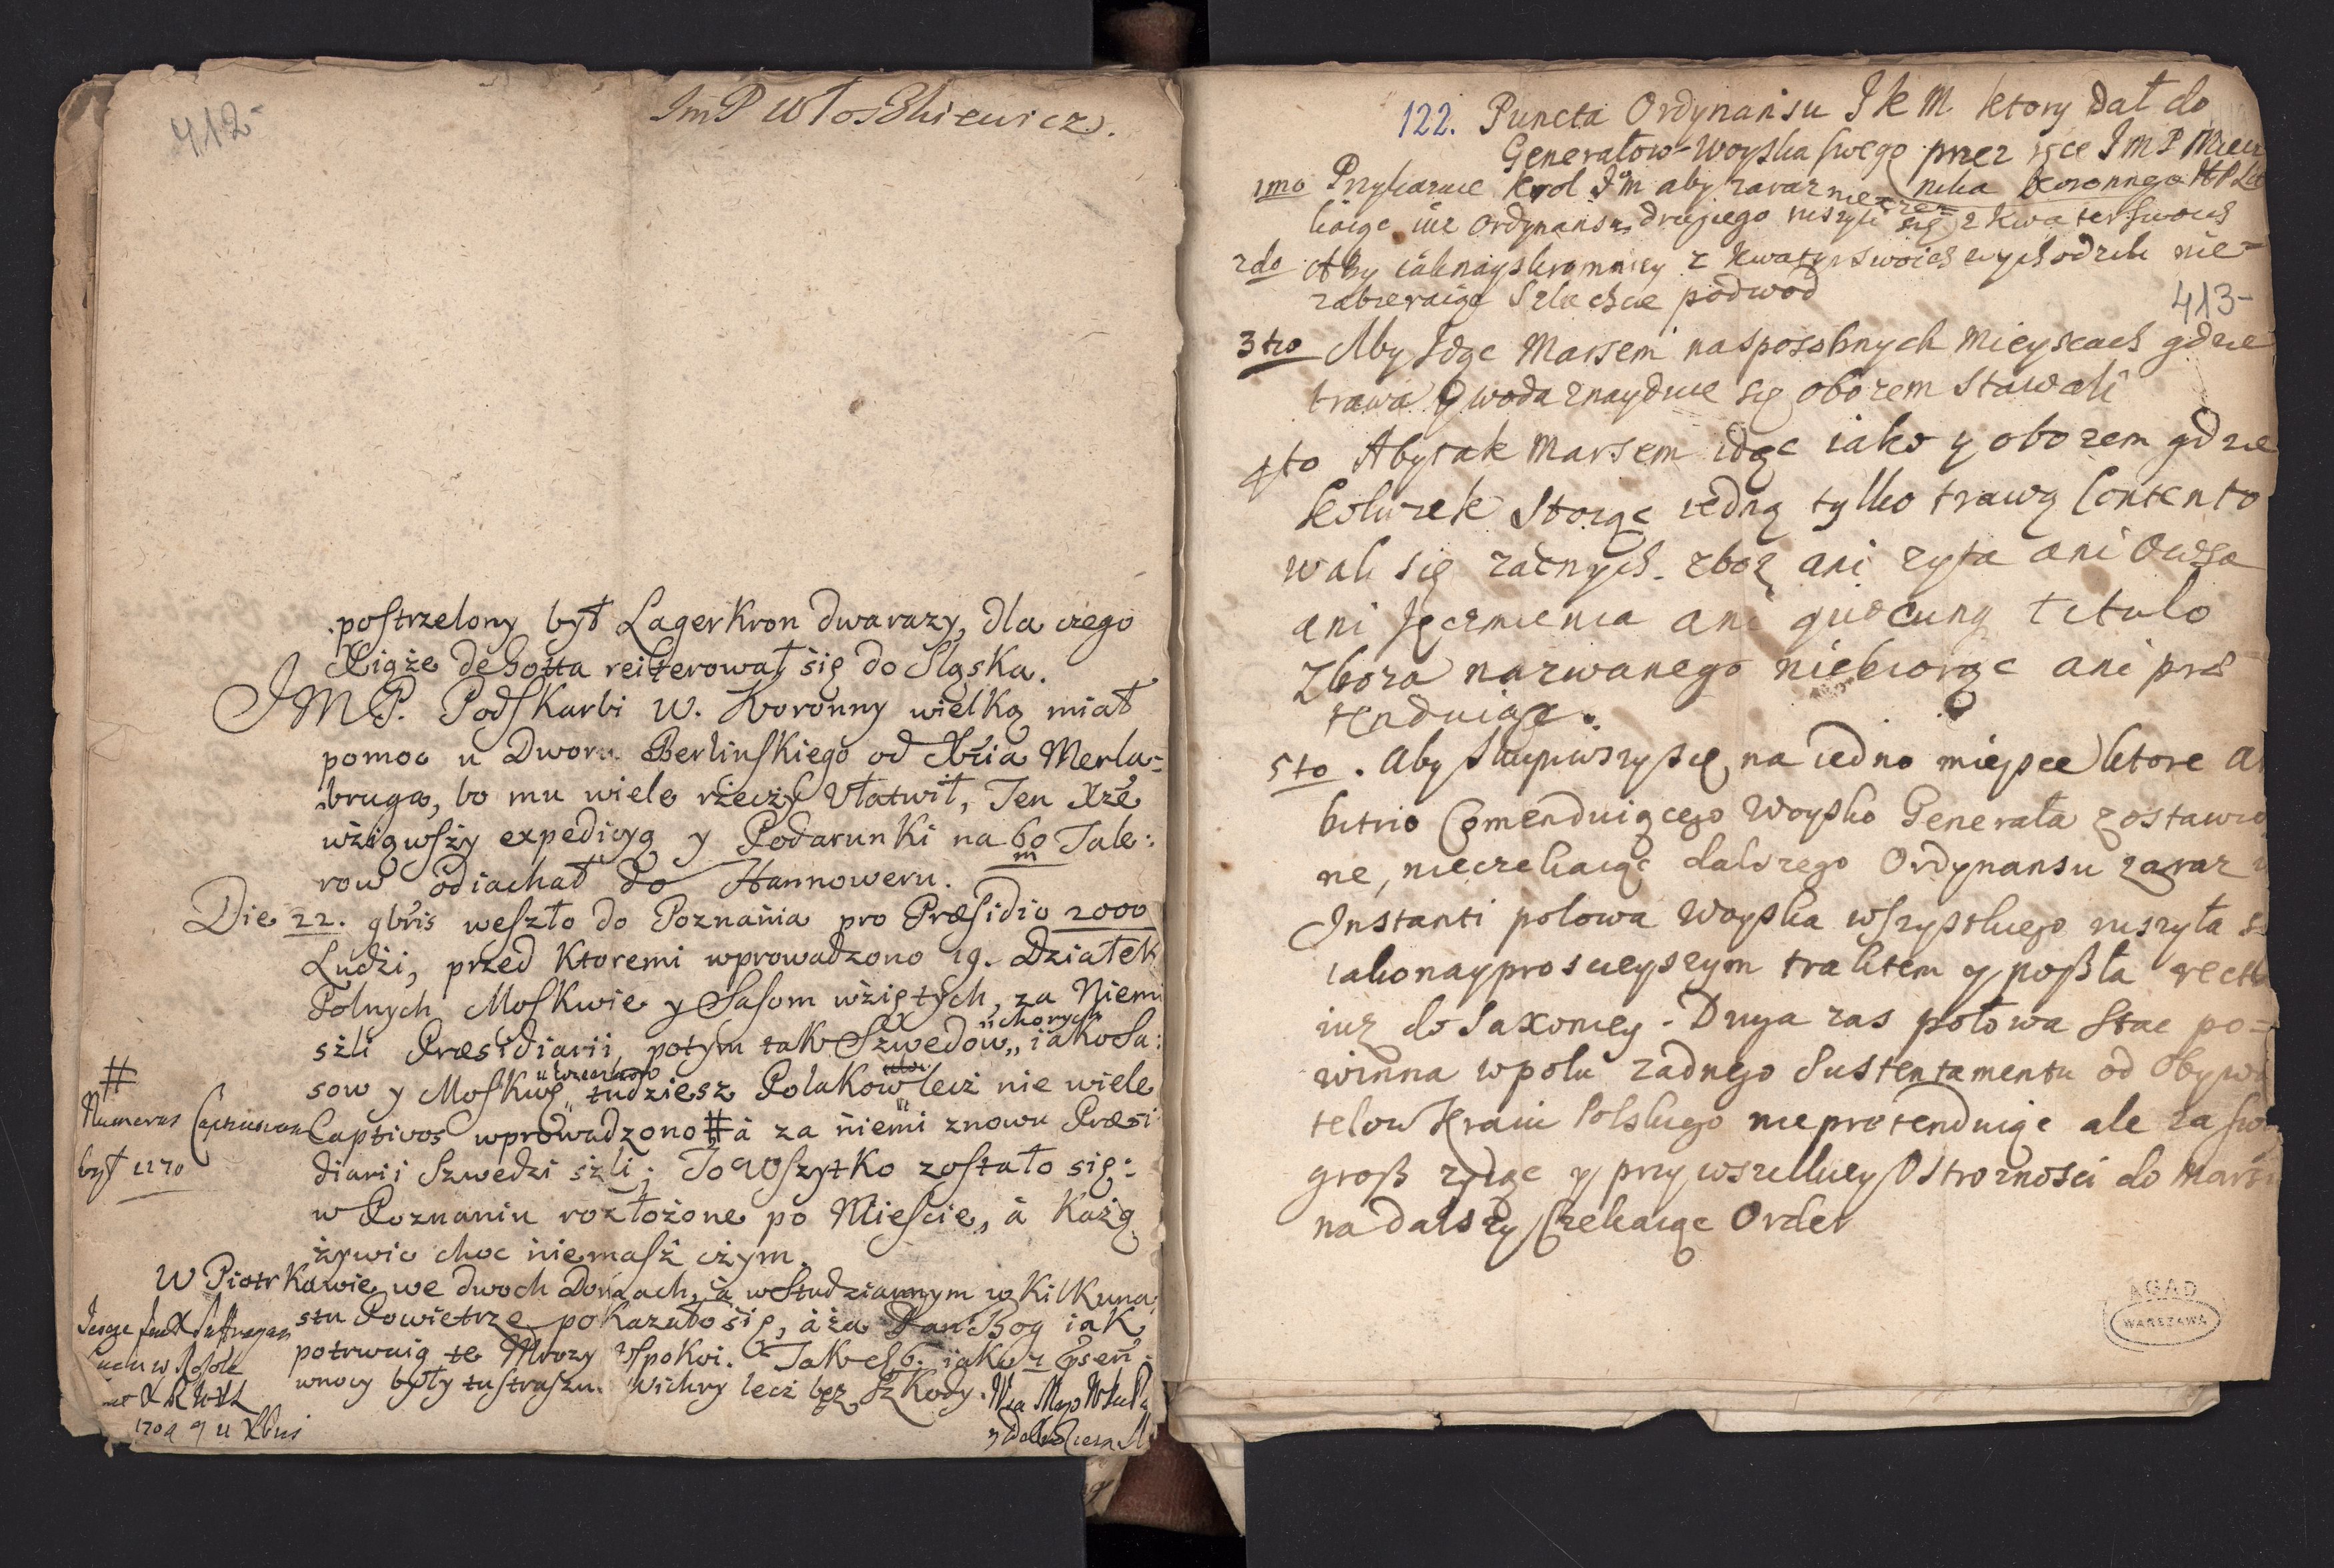 412
ImP Włos
postrzelony był Lagerkron dwa razy, dla czego
Xiąże de Gotta reiterował się do Sląska.
JMP. Podskarbi W. Koronny wielką miał
pomoc u Dworu Berlinskiego od Xżia Merla=
bruga, bo mu wiele rzeczy Vłatwił, Ten Xże
wziąwszy expedicyą y Podarunki na 60 Tale:
m
row odiachał do Hannoweru.
Die 22. gbris weszło do Poznania pro Præsidio 2000
Ludzi, przed Ktoremi wprowadzono 19. Działek
Polnych Moskwie y Sasom wziętych, za Niemi
szli Præsidiarii, potym tak Szwedow,, iako Sa:
,,chorych
sow y Moskwę,, tudziesz Polakow lecz nie wiele
Captivos wprowadzono # à za niemi znowu Præsi
diarii Szwedzi szli; To wszytko zostało się:
w Poznaniu rozłożone po Miescie, à Każą
żywic choc niemasz czym.
#
Numerus
był 1170
W Piotrkawie we dwoch Domach, à w Studziannym w Kilkuna
stu Powietrze pokazało się, àża Pan Bog iak
potrwaią te Mrozy Vspokoi. Tak
wnocy były tu straszn. wichry lecz bez Szkody.
122. Puncta Ordynansu JKM ktory dał do
Generałow Woyska swego przez ręce JmP Miecz
nika Koronnego
1mo Przykazuie Krol Jm aby zaraz niecze=
kaiąc iuz ordynansu drugiego ruszyli się z kwater swoich
2do Aby iaknayskromniey z kwater swoich wychodzili nie=
zabieraiąc Szlachcie podwod
413
3tio Aby Idąc Marsem na sposobnych Mieyscach gdzie
trawa y woda znayduie się obozem stawali
4to Aby tak Marsem idąc iako y obozem gdzie
kolwiek stoiąc iedną tylko trawą Contento
wali się zadnych zboz ani zyta ani Owsa
ani Jęczmienia ani quocunq titulo
Zboza nazwanego niebiorąc ani præ
tenduiąc.
5to. Aby skupiwszy się na iedno mieysce ktore Ar
bitrio Comenduiącego Woysko Generała zostawio
ne, nieczekaiąc dalszego Ordynansu zaraz
Instanti połowa Woyska wszystkiego ruszyła s
iakonayprosciejszym traktem y poszła recta
iuz do Saxoniey. Druga zas połowa stac po=
winna w polu zadnego Sustentamentu od Obywa
telow Kraiu Polskiego nieprætenduiąc ale za swo
grosz zyiąc y przy wszelkiey Ostroznosci do Marsu
na Dalszy Czekaiąc Order
AGAD
WARSZAWA